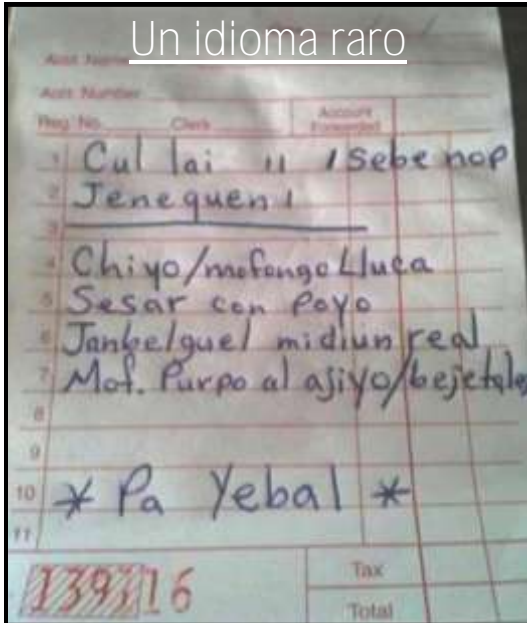 Un idioma raro
Acct. Name
Acct. Number
Reg. No. Clerk Account Forwarded
1 Cul lai 11 1 Sebe nop
2 Jenequen 1
3
4 Chiyo/mofongo Lluca
5 Sesar con Poyo
6 Janbelguel midiun real
7 Mof. Purpo al ajiyo/bejetales
8
9
10 * Pa Yebal *
11
139316
Tax
Total